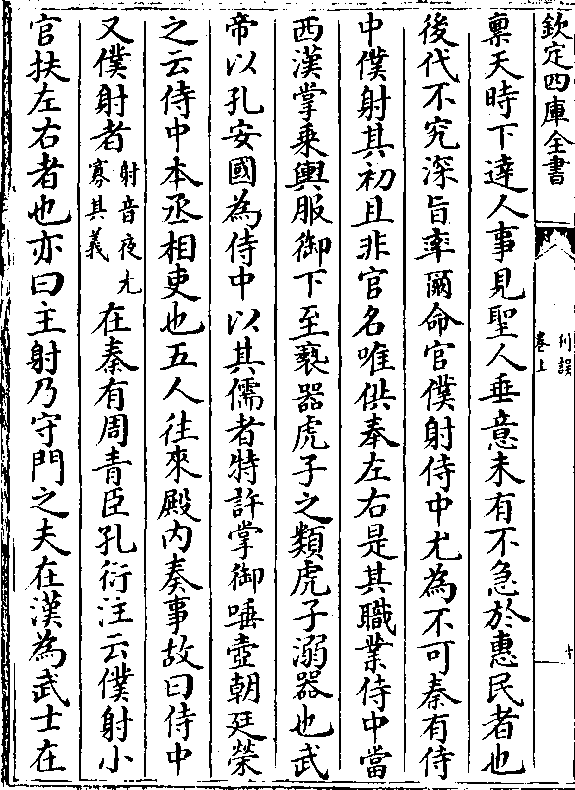 欽定四庫全書
刊誤
卷上
十
稟天時下達人事見聖人垂意未有不急於惠民者也
後代不究深旨率爾命官僕射侍中尤為不可秦有侍
中僕射其初且非官名唯供奉左右是其職業侍中當
西漢掌乘輿服御下至褻器虎子之類虎子溺器也武
帝以孔安國為侍中以其儒者特許掌御唾壺朝廷榮
之云侍中本丞相吏也五人往來殿内奏事故曰侍中
又僕射者射音夜尤寡其義在秦有周青臣孔衍注云僕射小
官扶左右者也亦曰主射乃守門之夫在漢為武士在